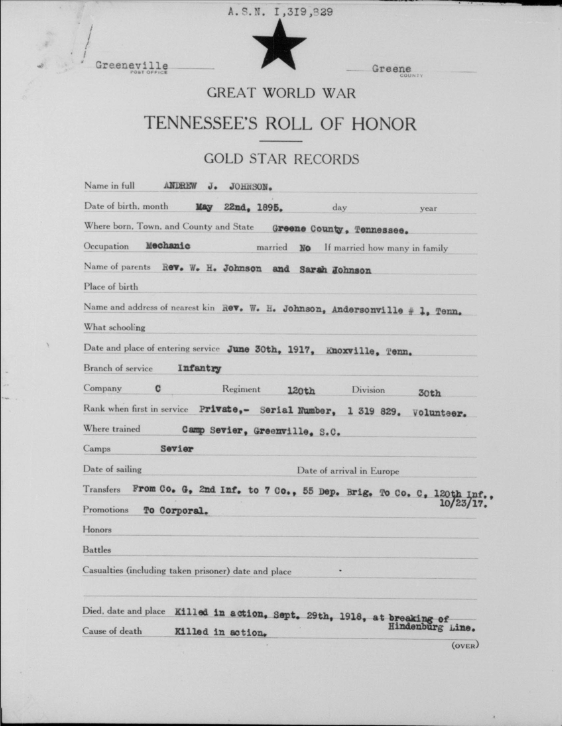 A.S.N. 1,319,829
Greeneville Greene
POST OFFICE COUNTY
GREAT WORLD WAR
TENNESSEE'S ROLL OF HONOR
GOLD STAR RECORDS
Name in full ANDREW J. JOHNSON.
Date of birth, month May 22nd, 1895. day year
Where born, Town, and County and State Greene County, Tennessee.
Occupation Mechanic married No If married how many in family
Name of parents Rev. W. H. Johnson and Sarah Johnson
Place of birth
Name and address of nearest kin Rev. W. H. Johnson, Andersonville # 1, Tenn.
What schooling
Date and place of entering service June 30th, 1917, Knoxville, Tenn.
Branch of service Infantry
Company C Regiment 120th Division 30th
Rank when first in service Private,- Serial Number, 1 319 829. Volunteer.
Where trained Camp Sevier, Greenville, S.C.
Camps Sevier
Date of sailing Date of arrival in Europe
Transfers From Co. G, 2nd Inf. to 7 Co., 55 Dep. Brig. To Co. C, 120th Inf.,
10/23/17.
Promotions To Corporal.
Honors
Battles
Casualties (including taken prisoner) date and place
Died, date and place Killed in action, Sept. 29th, 1918, at breaking of
Hindenburg Line.
Cause of death Killed in action.
(OVER)